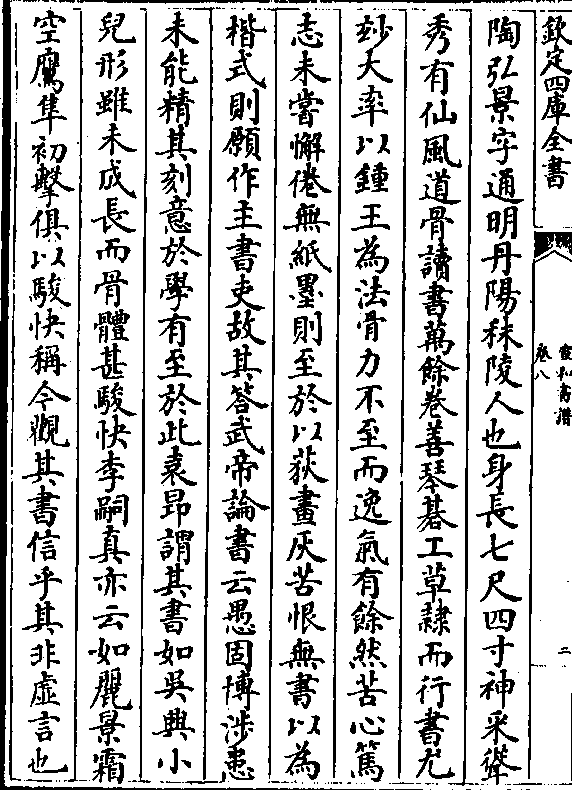 欽定四庫全書
宣和書譜
卷八
二
陶弘景字通明丹陽秣陵人也身長七尺四寸神采聳
秀有仙風道骨讀書萬餘卷善琴棊工草隸而行書尤
妙大率以鍾王為法骨力不至而逸氣有餘然苦心篤
志未嘗懈倦無紙墨則至於以荻畫灰苦恨無書以為
楷式則願作主書吏故其答武帝論書云愚固博涉患
未能精其刻意於學有至於此袁昂謂其書如吳興小
兒形雖未成長而骨體甚駿快李嗣真亦云如麗景霜
空鷹隼初擊俱以駿快稱今觀其書信乎其非虛言也